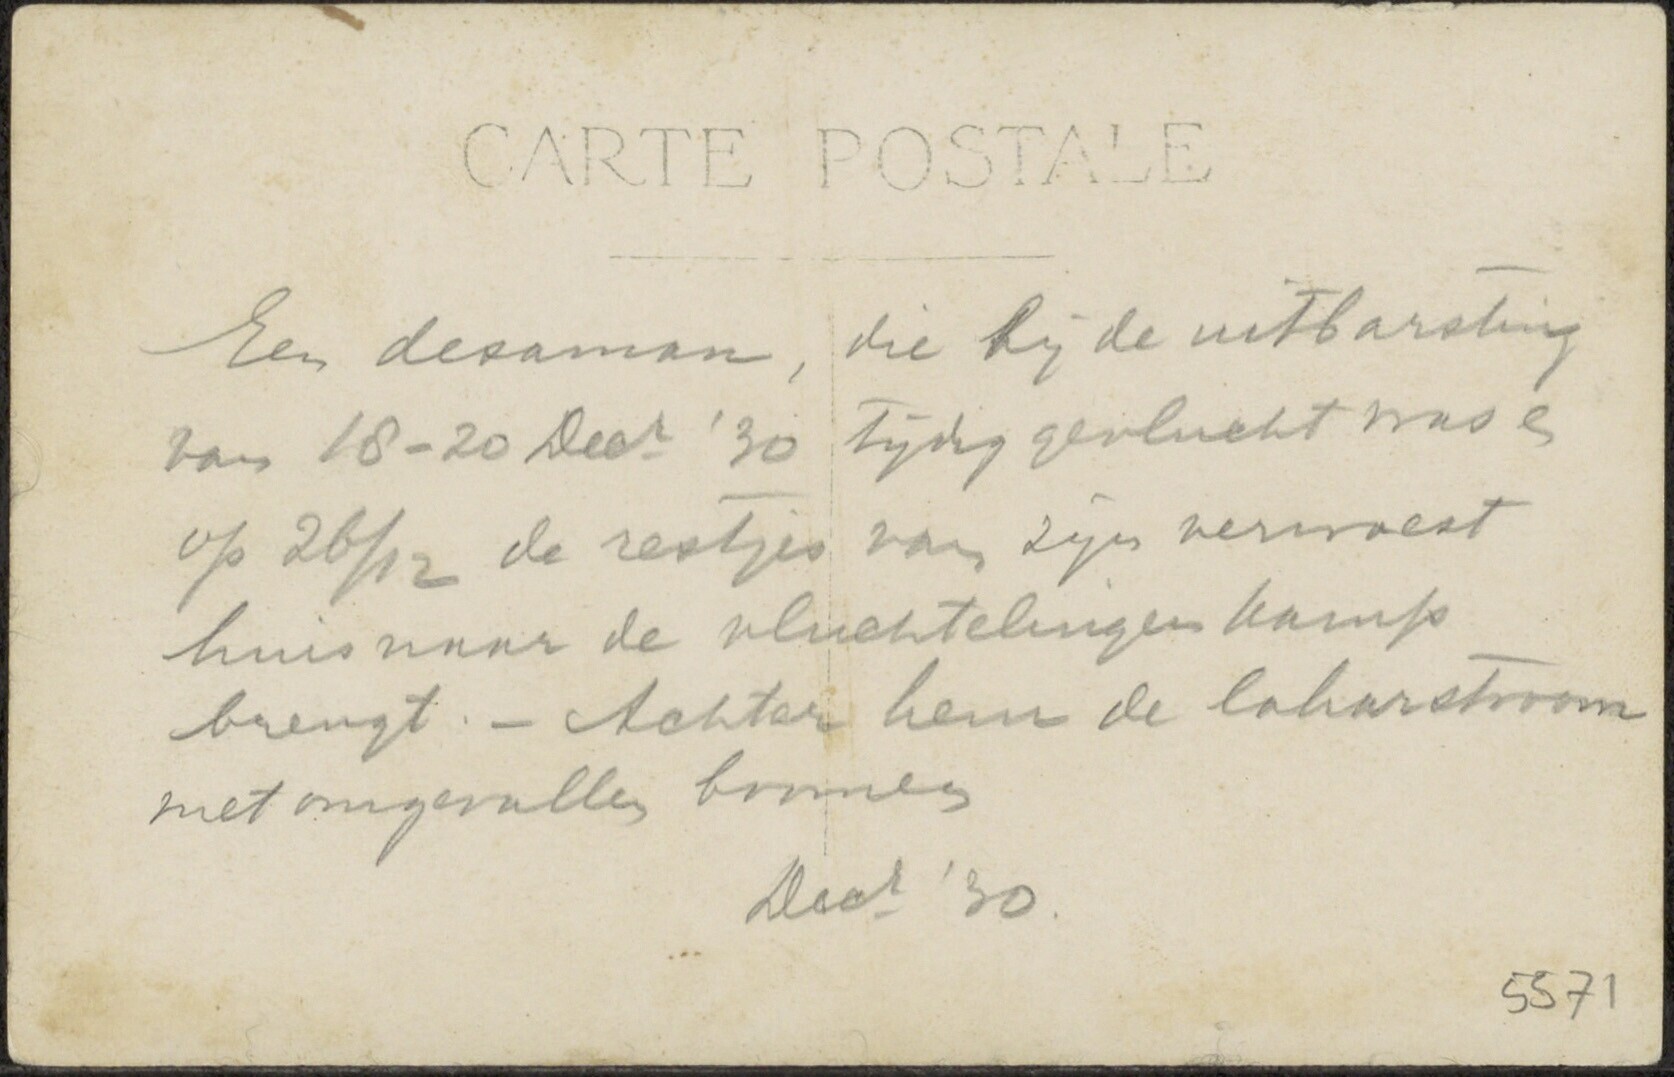 CARTE POSTALE
Een desaman, die bij de uitbarsting
van 18-20 Decr '30 tijdig gevlucht was en
op 26/12 de restjes van zijn verwoest
huis naar de vluchtelingenkamp
brengt. - Achter hem de laharstroom
met omgevallen boomen
Decr '30.
5571